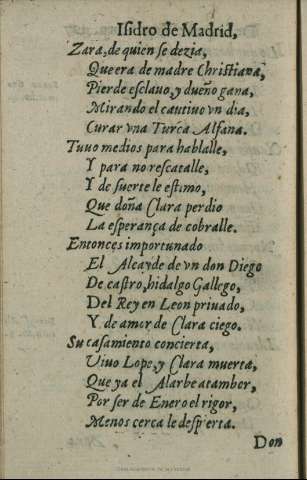 Isidro de Madrid,
Zara, de quien se dezia,
Que era de madre Christiana,
Pierde esclauo, y dueño gana,
Mirando el cautiuo vn dia,
Curar vna Turca Alfana.
Tuuo medios para hablalle,
Y para no rescatalle,
Y de suerte le estimo,
Que doña Clara perdio
La esperança de cobralle.
Entonces importunado
El Alcayde de vn don Diego
De castro, hidalgo Gallego,
Del Rey en Leon priuado,
Y de amor de Clara ciego.
Su casamiento concierta,
Viuo Lope, y Clara muerta,
Que ya el Alarbe atambor,
Por ser de Enero el rigor,
Menos cerca le despierta.
Don